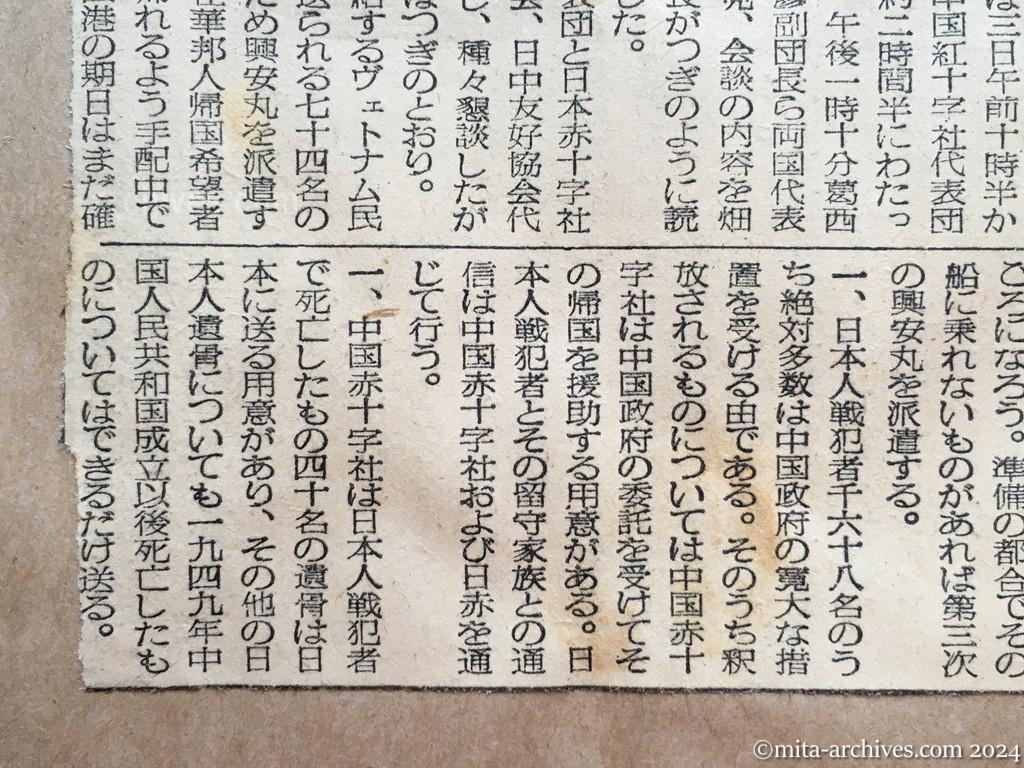 は三日午前十時半か
中国紅十字社代表団
約二時間半にわたっ
午後一時十分葛西
副団長ら両国代表
、会談の内容を畑
長がつぎのように読
した。
表団と日本赤十字社
会、日中友好協会代
し、種々懇談したが
はつぎのとおり。
結するヴェトナム民
送られる七十四名の
ため興安丸を派遣す
在華邦人帰国希望者
帰れるよう手配中で
出港の期日はまだ確
ころになろう。準備の都合でその
船に乗れないものがあれば第三次
の興安丸を派遣する。
一、日本人戦犯者千六十八名のう
ち絶対多数は中国政府の寛大な措
置を受ける由である。そのうち釈
放されるものについては中国赤十
字社は中国政府の委託を受けてそ
の帰国を援助する用意がある。日
本人戦犯者とその留守家族との通
信は中国赤十字社および日赤を通
じて行う。
一、中国赤十字社は日本人戦犯者
で死亡したもの四十名の遺骨は日
本に送る用意があり、その他の日
本人遺骨についても一九四九年中
国人民共和国成立以後死亡したも
のについてはできるだけ送る。
©mita-archives.com 2024